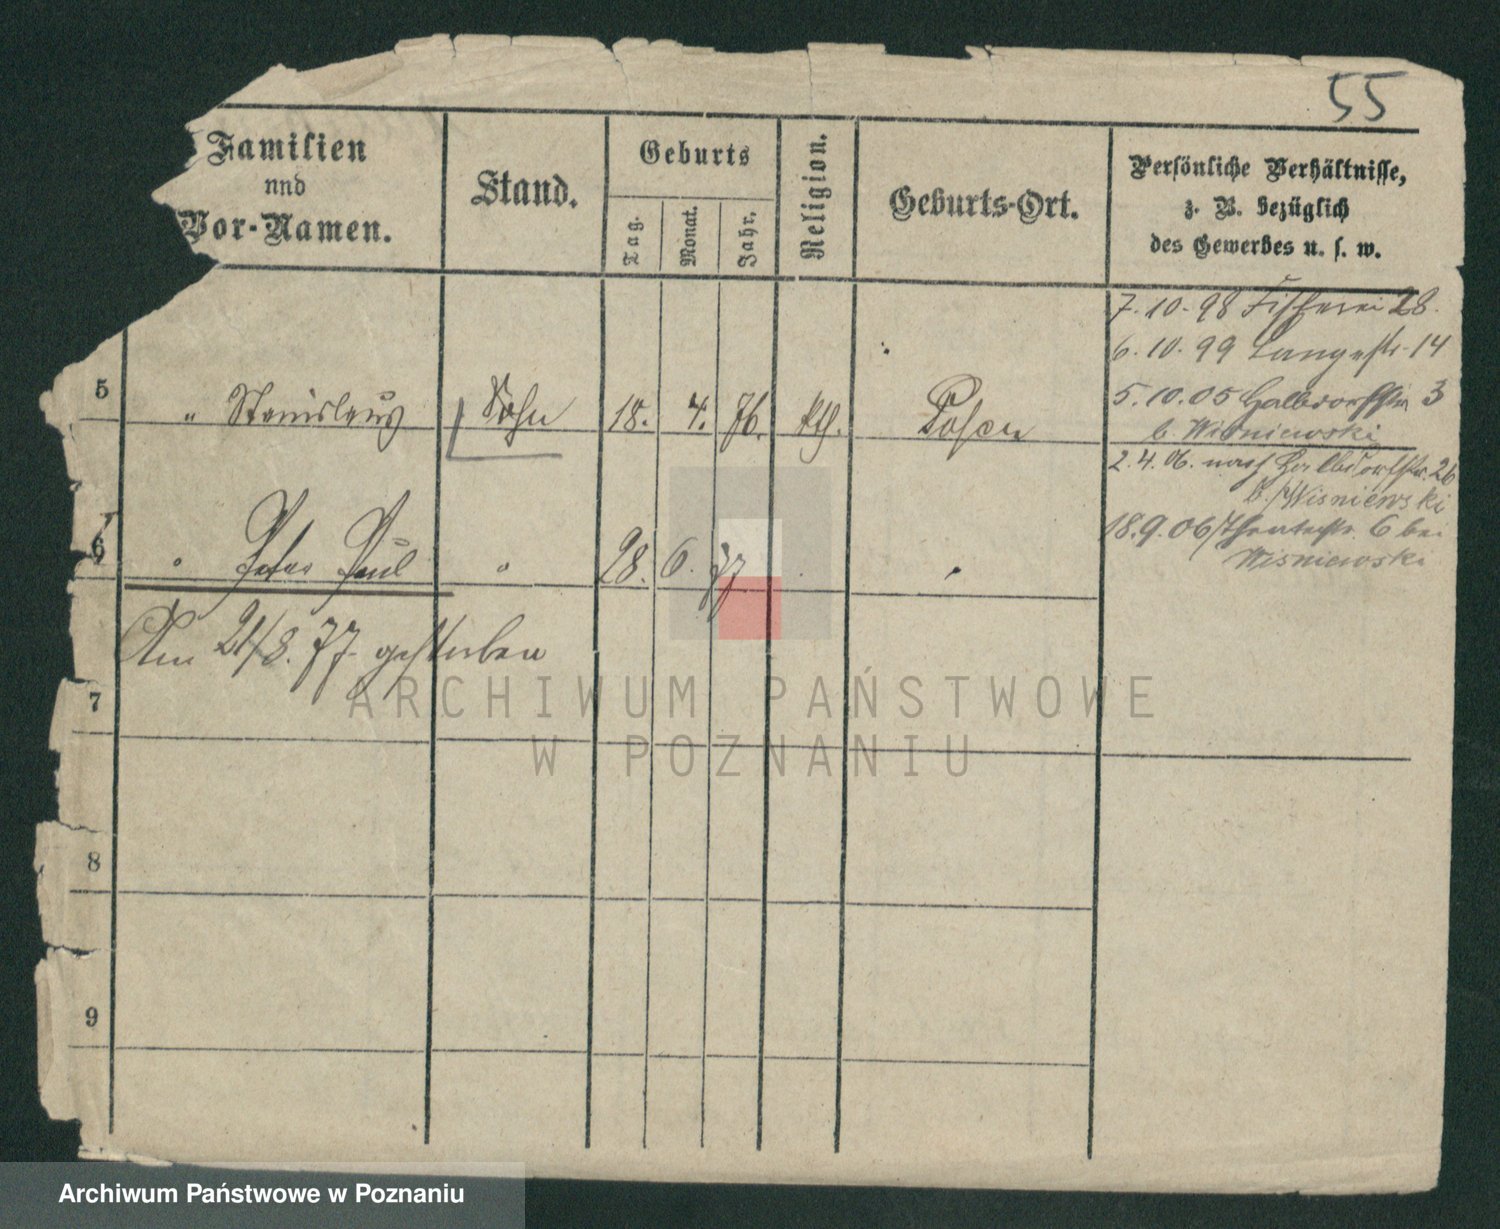 55
Familien
und
Vor-Namen.
Stand.
Geburts
Tag.
Monat.
Jahr.
Religion.
Geburts-Ort.
Persönliche Verhältnisse,
z. B. bezüglich
des Gewerbes u. s. w.
7.10.98 Fischerei 28.
6.10.99 Langestr. 14
5 " Stanislaus Sohn 18. 4. 76. kth. Posen
5.10.05 Halbdorfstr 3
b. Wisniewski
2.4.06. nach Halbdorfstr. 26
b. Wisniewski
6 " Peter Paul " 28. 6. 77 "
18.9.06 Theaterstr. 6 bei
Wisniewski
Am 21/8. 77. gestorben
7
8
9
ARCHIWUM PAŃSTWOWE
W POZNANIU
Archiwum Państwowe w Poznaniu